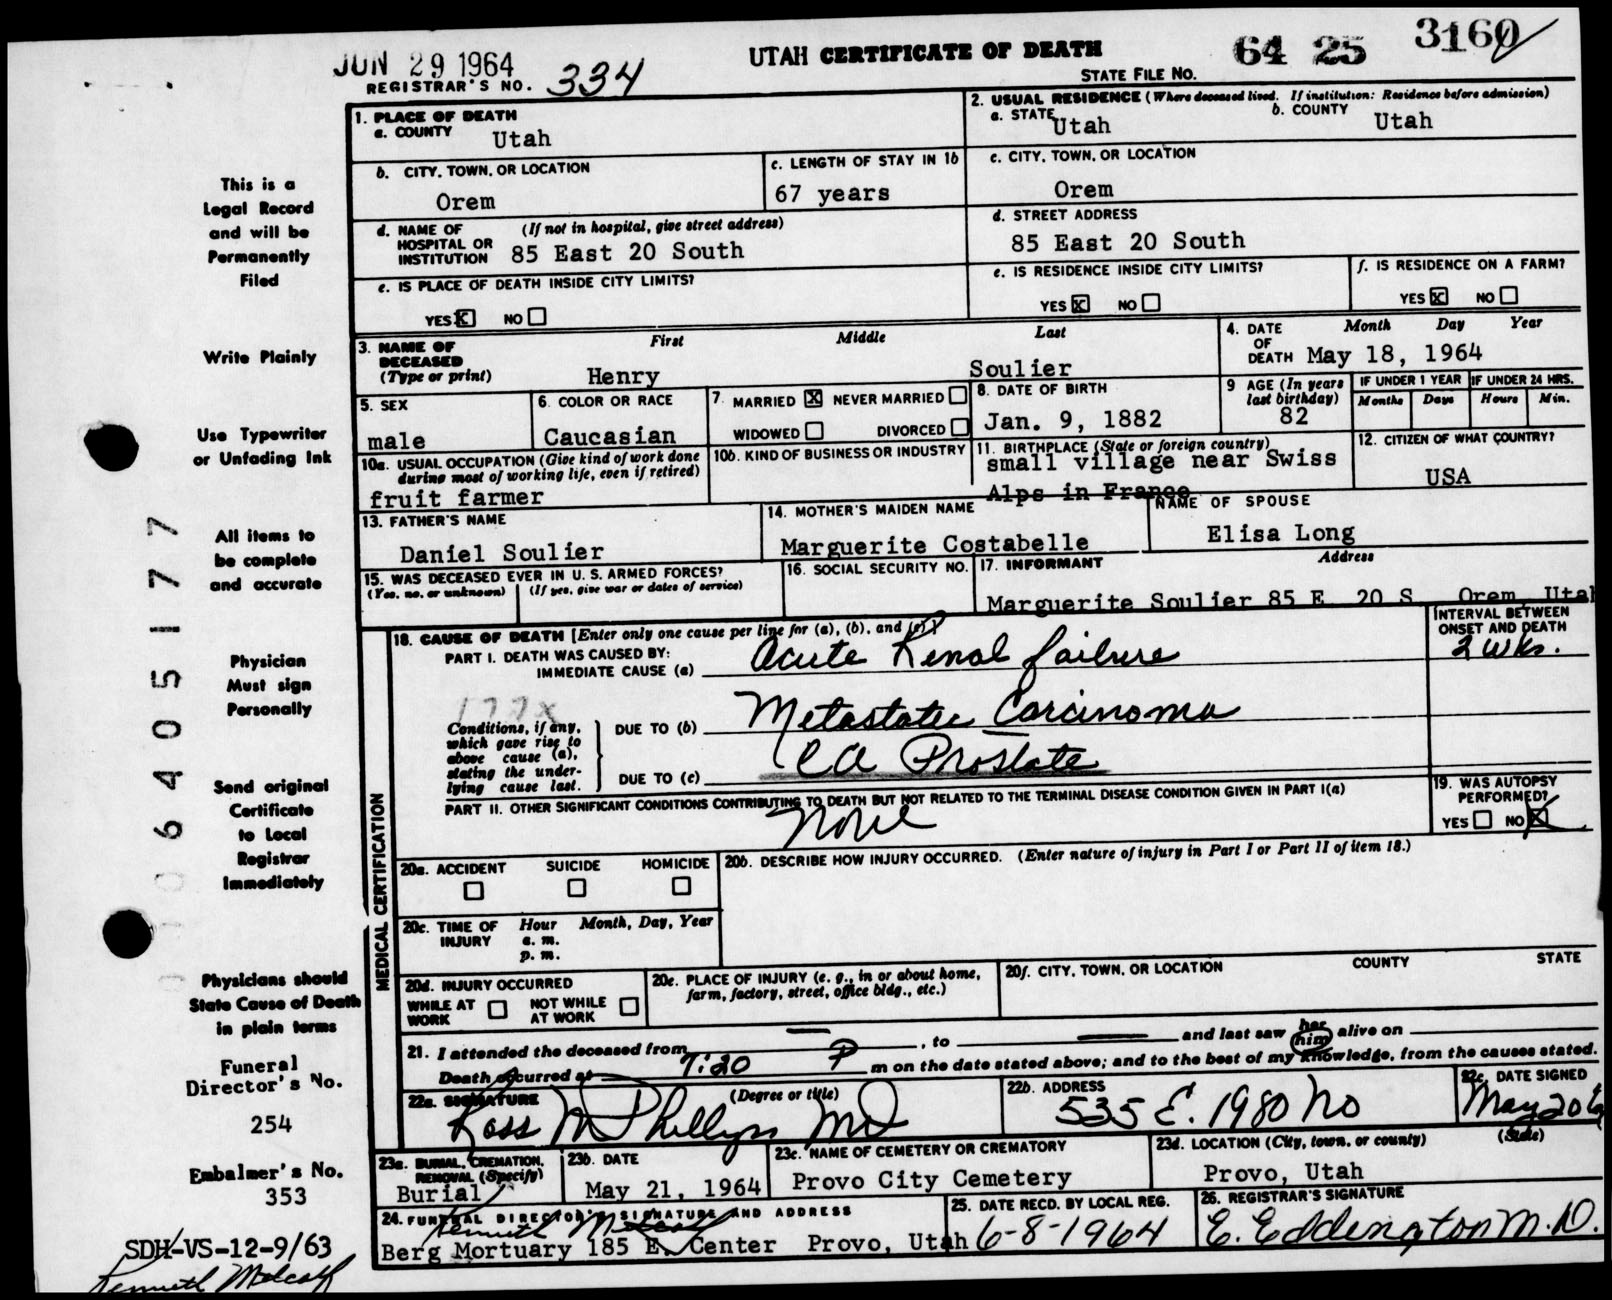 JUN 29 1964
REGISTRAR'S NO. 334
UTAH CERTIFICATE OF DEATH
STATE FILE NO. 64 25 3160
This is a
Legal Record
and will be
Permanently
Filed
Write Plainly
Use Typewriter
or Unfading Ink
All items to
be complete
and accurate
Physician
Must sign
Personally
Send original
Certificate
to Local
Registrar
Immediately
Physicians should
State Cause of Death
in plain terms
Funeral
Director's No.
254
Embalmer's No.
353
SDH-VS-12-9/63
Kenneth Metcalf
6405177
1. PLACE OF DEATH
a. COUNTY Utah
2. USUAL RESIDENCE (Where deceased lived. If institution: Residence before admission)
a. STATE Utah b. COUNTY Utah
b. CITY, TOWN, OR LOCATION
Orem
c. LENGTH OF STAY IN 1b
67 years
c. CITY, TOWN, OR LOCATION
Orem
d. NAME OF HOSPITAL OR INSTITUTION (If not in hospital, give street address)
85 East 20 South
d. STREET ADDRESS
85 East 20 South
e. IS PLACE OF DEATH INSIDE CITY LIMITS?
YES X NO
e. IS RESIDENCE INSIDE CITY LIMITS?
YES X NO
f. IS RESIDENCE ON A FARM?
YES X NO
3. NAME OF DECEASED (Type or print)
First Middle Last
Henry Soulier
4. DATE OF DEATH Month Day Year
May 18, 1964
5. SEX
male
6. COLOR OR RACE
Caucasian
7. MARRIED X NEVER MARRIED
WIDOWED DIVORCED
8. DATE OF BIRTH
Jan. 9, 1882
9 AGE (In years last birthday)
82
IF UNDER 1 YEAR
Months Days
IF UNDER 24 HRS.
Hours Min.
10a. USUAL OCCUPATION (Give kind of work done during most of working life, even if retired)
fruit farmer
10b. KIND OF BUSINESS OR INDUSTRY
11. BIRTHPLACE (State or foreign country)
small village near Swiss
Alps in France
12. CITIZEN OF WHAT COUNTRY?
USA
13. FATHER'S NAME
Daniel Soulier
14. MOTHER'S MAIDEN NAME
Marguerite Costabelle
NAME OF SPOUSE
Elisa Long
15. WAS DECEASED EVER IN U. S. ARMED FORCES?
(Yes, no, or unknown) (If yes, give war or dates of service)
16. SOCIAL SECURITY NO.
17. INFORMANT Address
Marguerite Soulier 85 E 20 S Orem, Utah
MEDICAL CERTIFICATION
18. CAUSE OF DEATH [Enter only one cause per line for (a), (b), and (c)]
INTERVAL BETWEEN ONSET AND DEATH
PART I. DEATH WAS CAUSED BY:
IMMEDIATE CAUSE (a) Acute Renal failure
2 wks.
177X
Conditions, if any, which gave rise to above cause (a), stating the underlying cause last.
DUE TO (b) Metastatic Carcinoma
DUE TO (c) CA Prostate
PART II. OTHER SIGNIFICANT CONDITIONS CONTRIBUTING TO DEATH BUT NOT RELATED TO THE TERMINAL DISEASE CONDITION GIVEN IN PART I(a)
None
19. WAS AUTOPSY PERFORMED?
YES NO X
20a. ACCIDENT SUICIDE HOMICIDE
20b. DESCRIBE HOW INJURY OCCURRED. (Enter nature of injury in Part I or Part II of item 18.)
20c. TIME OF INJURY Hour Month, Day, Year
a. m.
p. m.
20d. INJURY OCCURRED
WHILE AT WORK NOT WHILE AT WORK
20e. PLACE OF INJURY (e. g., in or about home, farm, factory, street, office bldg., etc.)
20f. CITY, TOWN, OR LOCATION COUNTY STATE
21. I attended the deceased from — , to — and last saw her him alive on
Death occurred at 7:20 P m on the date stated above; and to the best of my knowledge, from the causes stated.
22a. SIGNATURE (Degree or title)
Ross M Phillips MD
22b. ADDRESS
535 E. 1980 No
22c. DATE SIGNED
May 20 64
23a. BURIAL, CREMATION, REMOVAL (Specify)
Burial
23b. DATE
May 21, 1964
23c. NAME OF CEMETERY OR CREMATORY
Provo City Cemetery
23d. LOCATION (City, town, or county) (State)
Provo, Utah
24. FUNERAL DIRECTOR'S SIGNATURE AND ADDRESS
Kenneth Metcalf
Berg Mortuary 185 E. Center Provo, Utah
25. DATE RECD. BY LOCAL REG.
6-8-1964
26. REGISTRAR'S SIGNATURE
E. Eddington M.D.